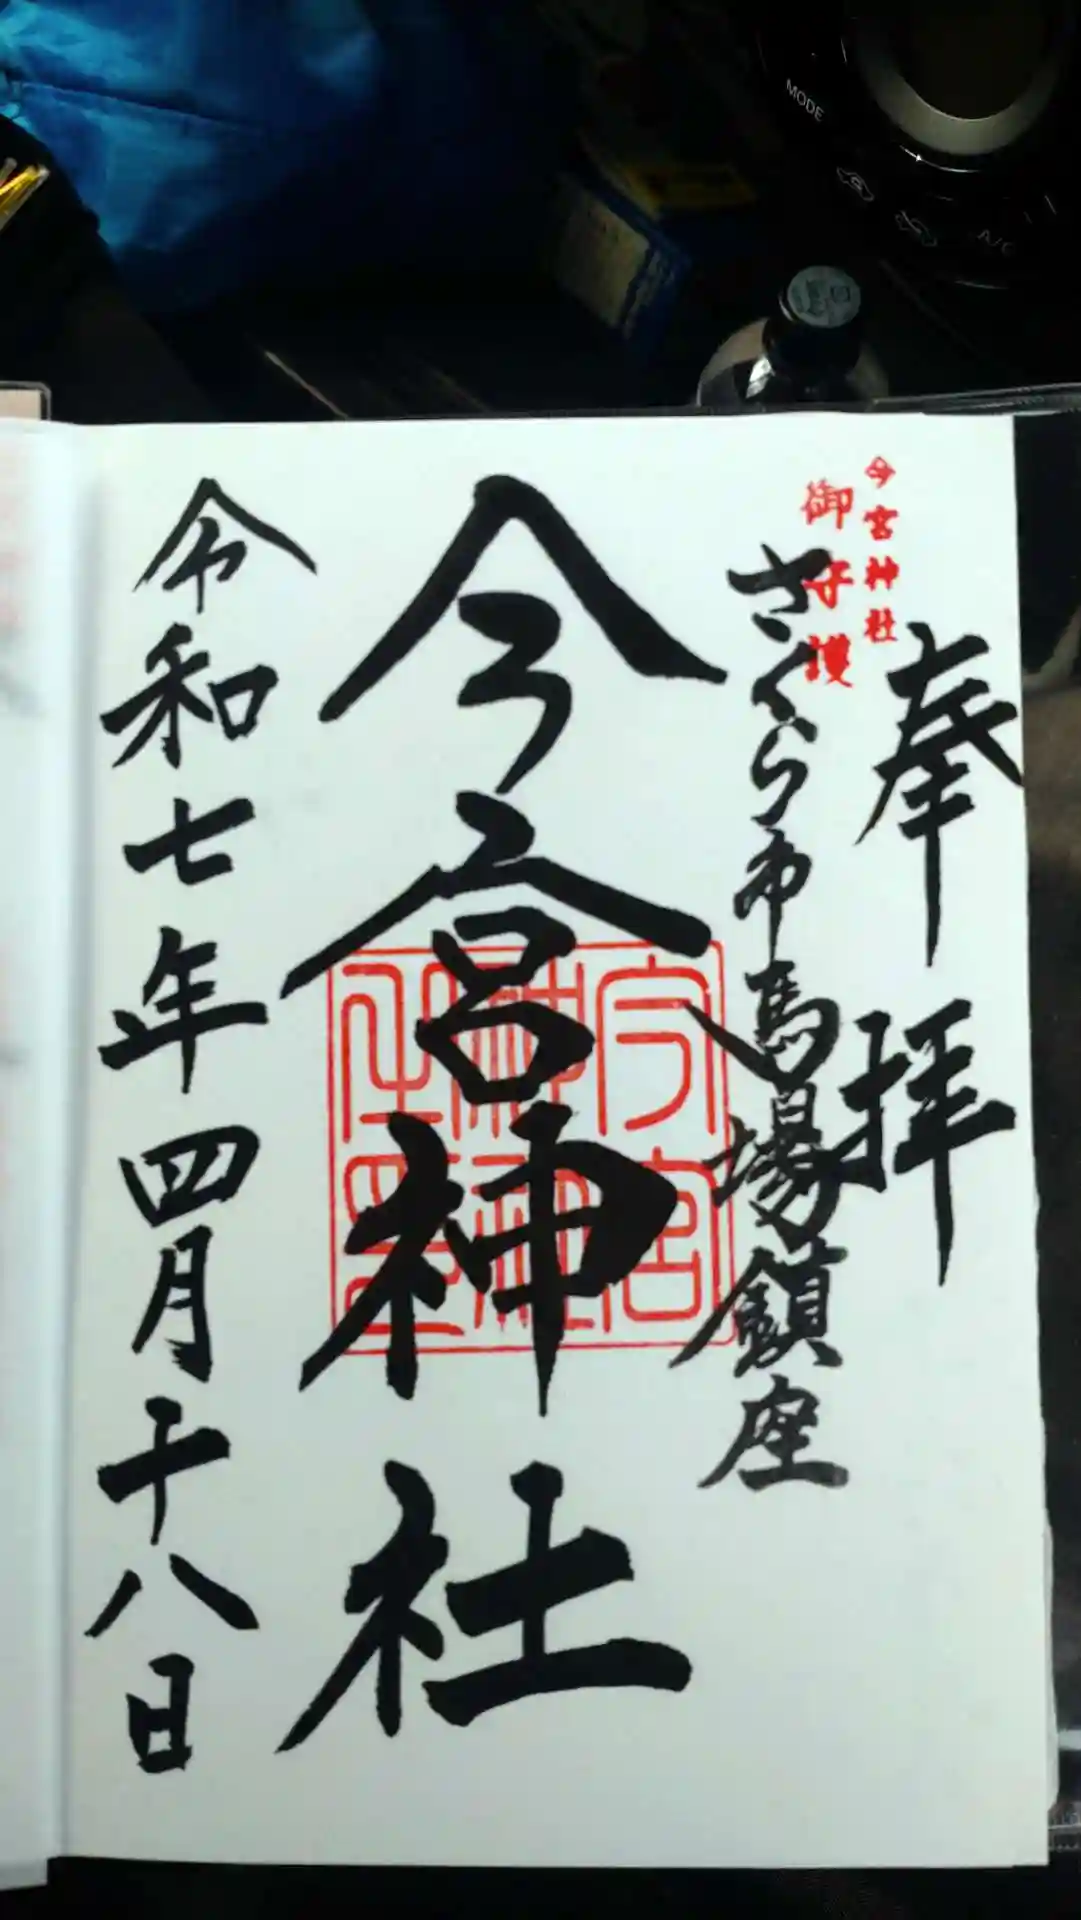 奉拝
今宮神社
御守護
さくら市馬場鎮座
今宮神社
今宮
神社
令和七年四月十八日
MODE
A/C